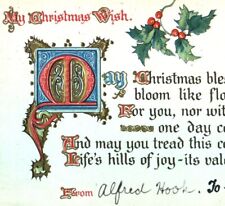 My Christmas Wish.
May Christmas bles
bloom like flo
For you, nor wit
one day c
And may you tread this c
Life's hills of joy-its val
From Alfred Hook. To